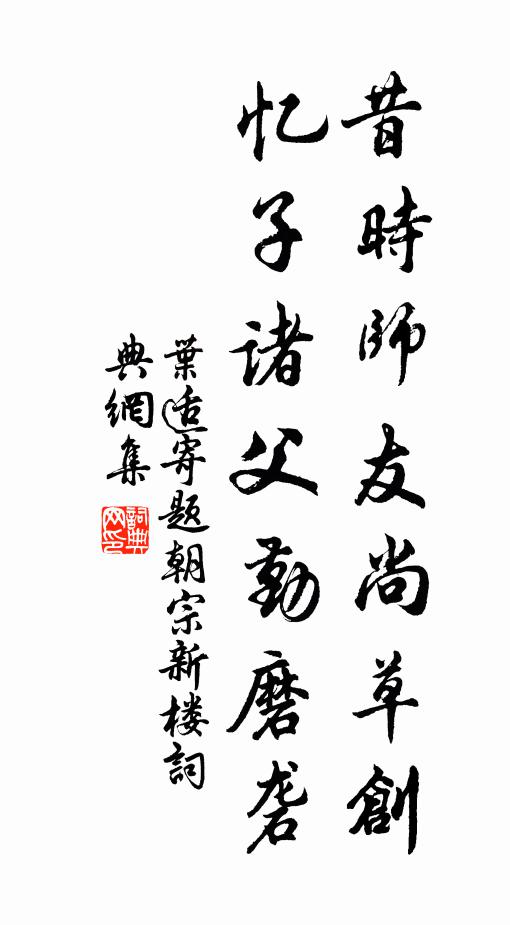 昔時師友尚草創
忆子諸父勤磨砻
葉适寄题朝宗新楼詞
典網集
詞典網印